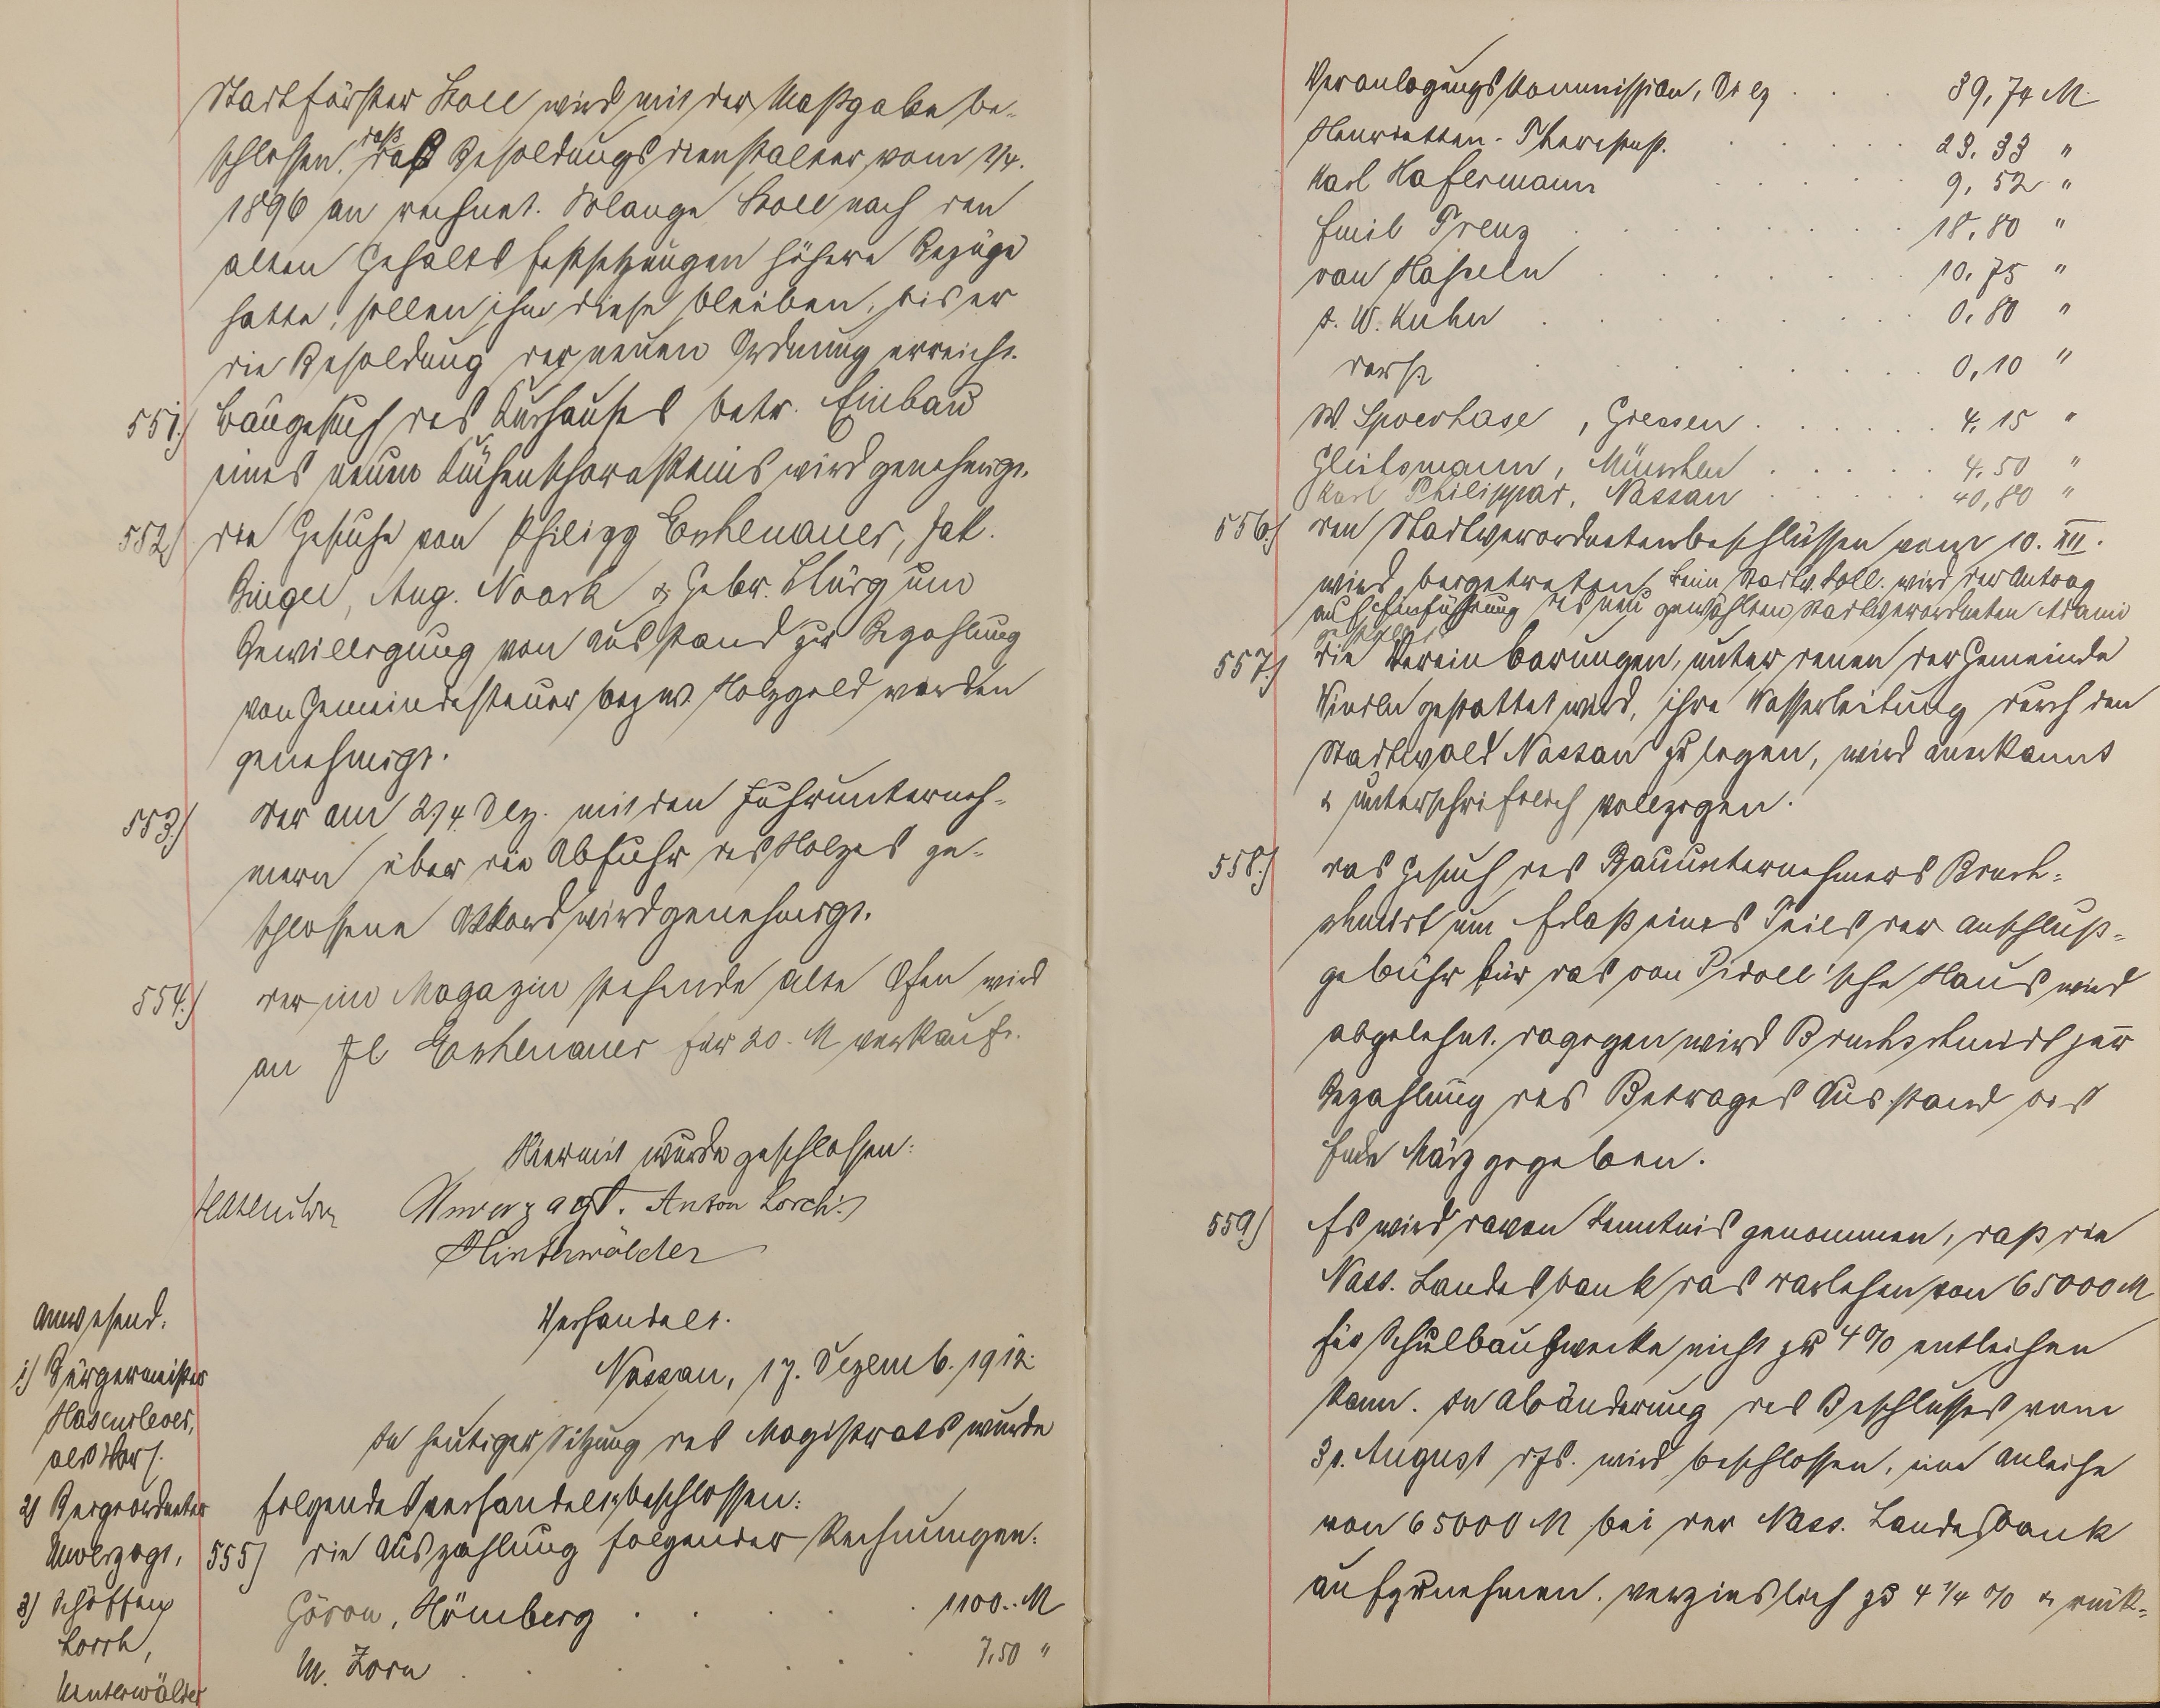 Stadtförster Stoll wird mit der Maßgabe be-
schlossen, daß das Besoldungsdienstalter vom 1/4.
1896 an rechnet. Solange Stoll nach den
alten Gehaltsfestsetzungen höhere Bezüge
hatte, sollen ihm diese bleiben, bis er
die Besoldung der neuen Ordnung erreicht.
551.) Baugesuch des Kurhauses betr. Einbau
eines neuen Küchenschornsteins wird genehmigt.
552.) Die Gesuche von Philipp Eschenauer, Jak.
Bingel, Aug. Noack & Gebr. Bürg um
Bewilligung von Ausstand zur Bezahlung
von Gemeindesteuer bezw. Holzgeld werden
genehmigt.
553.) Der am 2/4. Dez. mit den Fuhrunterneh-
mern über die Abfuhr des Holzes ge-
schlossene Akkord wird genehmigt.
554.) Der im Magazin stehende alte Ofen wird
an Eschenauer für 20. M verkauft.
Hiermit wurde geschlossen:
Hasenclever Unverzagt. Anton Lorch.
Hinterwälder
Verhandelt.
Nassau, 17. Dezemb. 1912.
In heutiger Sitzung des Magistrats wurde
folgendes verhandelt & beschlossen:
Anwesend:
1) Bürgermeister
Hasenclever,
als Vors.
2) Beigeordneter
Unverzagt,
3) Schöffen
Lorch,
Hinterwälder
555) Die Auszahlung folgender Rechnungen:
Hömberg . . . . 1100.- M
M. Zorn . . . . . 7,50 "
Veranlagungskommission, Diez . . . 39,74 M.
Henrietten-Theresenst. . . . . . 23,33 "
Karl Hafermann . . . . 9,52 "
Emil Preuz . . . . . . . 18,80 "
von Hasseln . . . . . 10,75 "
W. Kuhn . . . . . . . 0,80 "
ders. . . . . . . . 0,10 "
W. Spoerhase, Giessen . . . . . . 4,15 "
Gleitsmann, München . . . . . 4,50 "
Karl Philippar, Nassau . . . . . 40,80 "
556.) Den Stadtverordnetenbeschlüssen vom 10. XII.
wird beigetreten. Beim Stadtv. Koll. wird der Antrag
auf Einführung des neu gewählten Stadtverordneten Adami
gestellt.
557.) Die Vereinbarungen, unter denen der Gemeinde
Winden gestattet wird, ihre Wasserleitung durch den
Stadtwald Nassau zu legen, wird anerkannt
& unterschriftlich vollzogen.
558.) Das Gesuch des Bauunternehmers Bruch-
schmidt um Erlaß eines Teils der Anschluß-
gebühr für das von Pidoll'sche Haus wird
abgelehnt. Dagegen wird Bruchschmidt zur
Bezahlung des Betrages Ausstand bis
Ende März gegeben.
559) Es wird davon Kenntnis genommen, daß die
Nass. Landesbank das Darlehen von 65000 M
für Schulbauzwecke nicht zu 4% entleihen
kann. In Abänderung des Beschlusses vom
31. August d. Js. wird beschlossen, eine Anleihe
von 65000 M bei der Nass. Landesbank
aufzunehmen. verzinslich zu 4 1/4 % & rück-